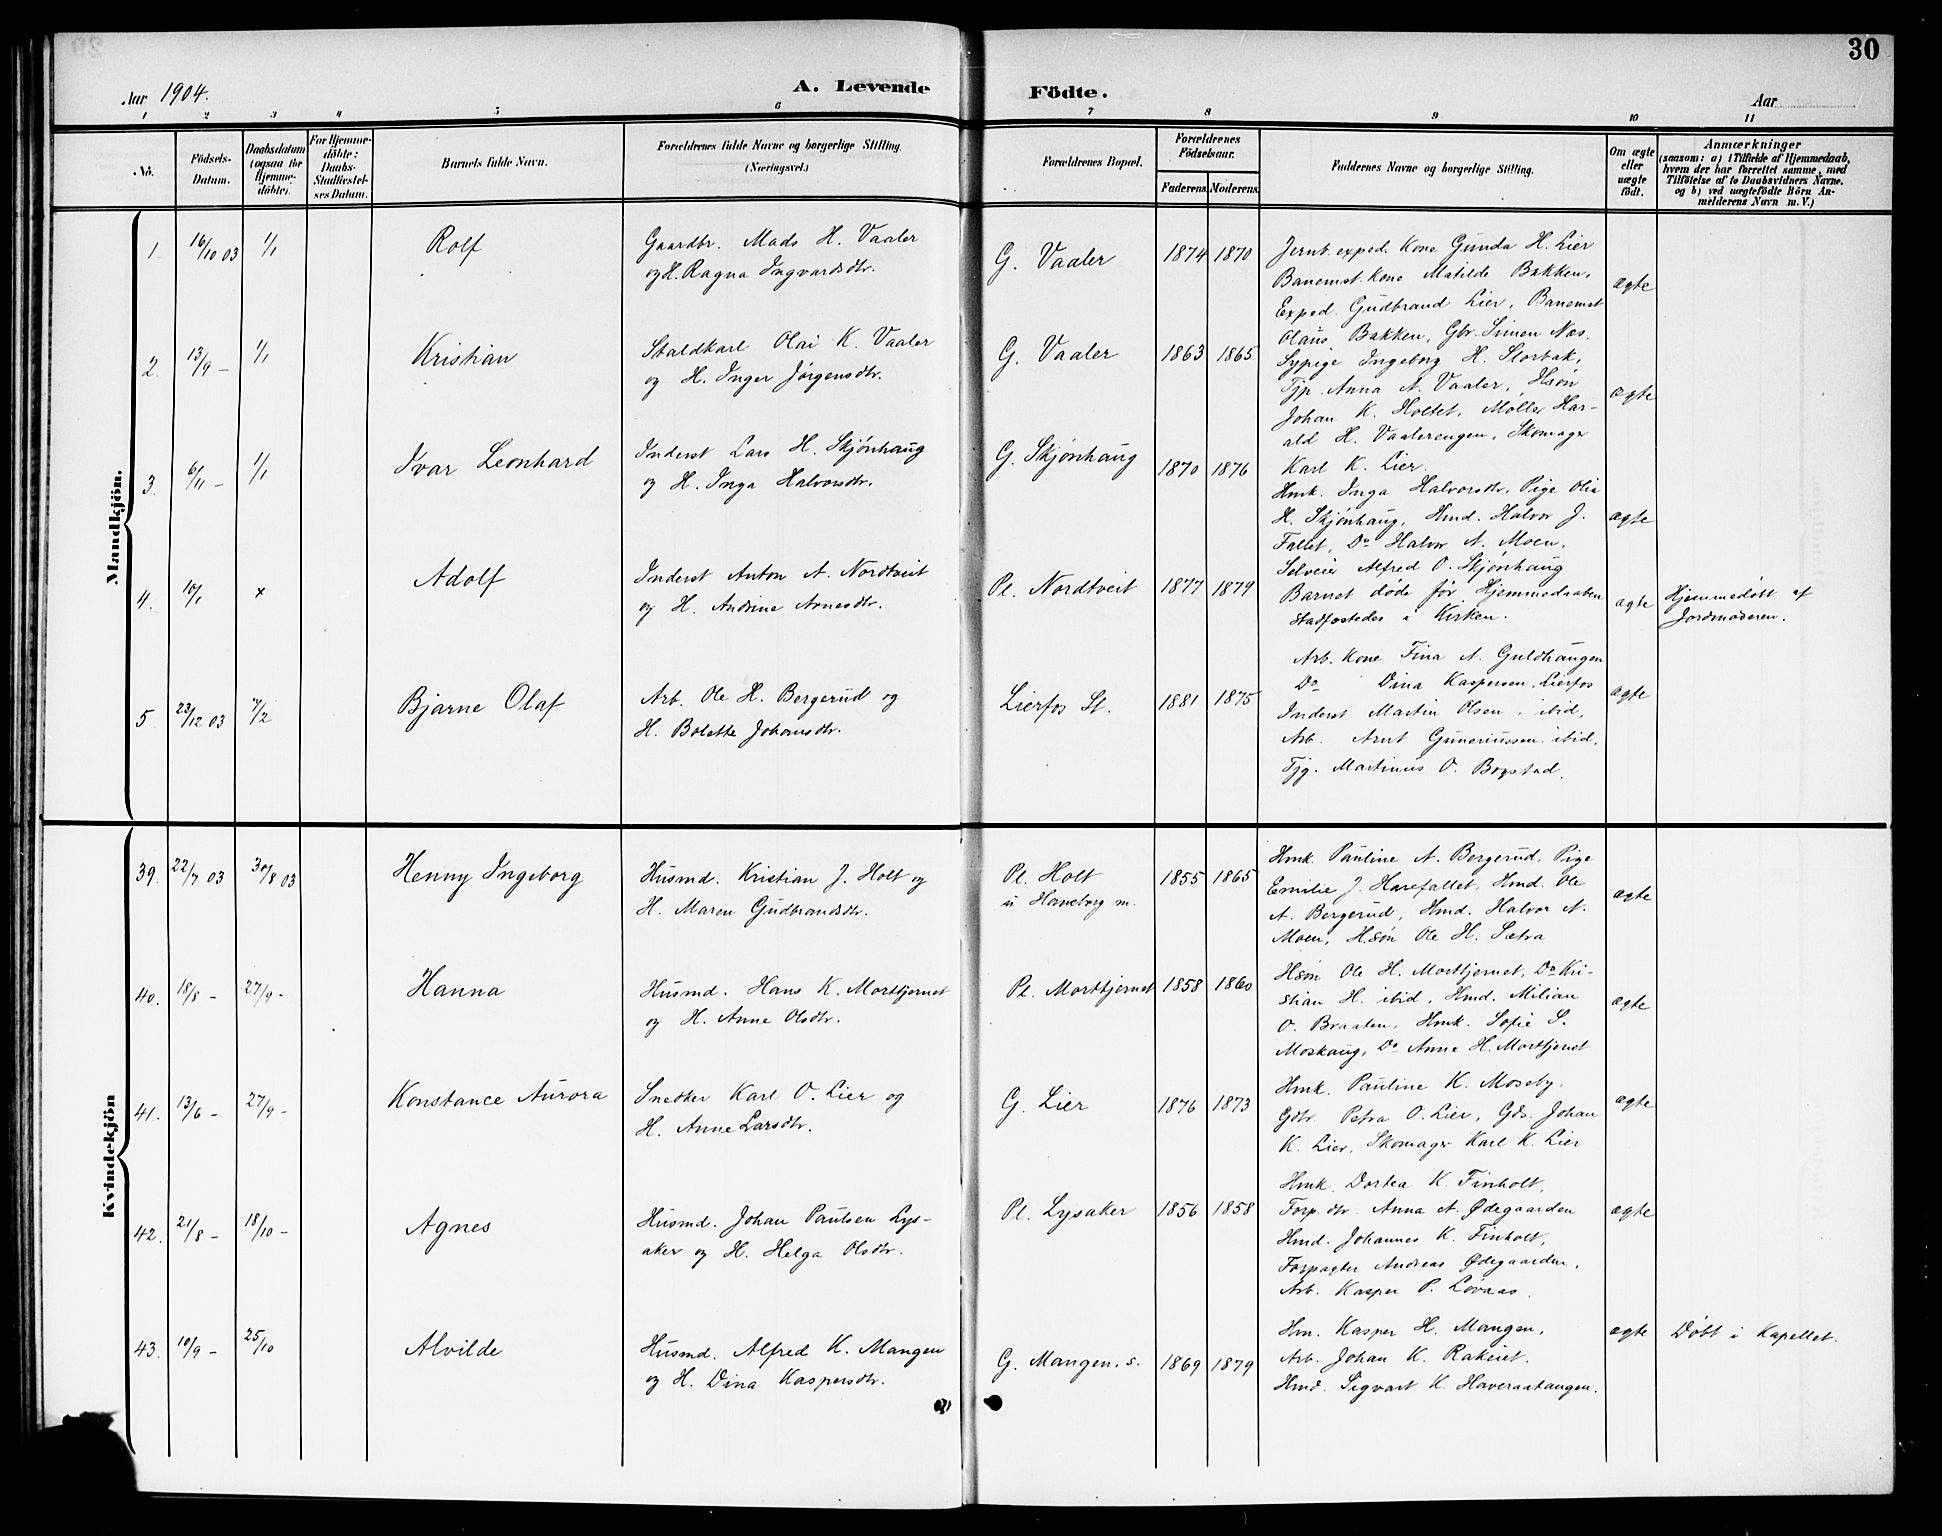 30
Aar 1904.
A. Levende Födte.
Aar
1 2 3 4 5 6 7 8 9 10 11
No.
Födsels-Datum.
Daabsdatum (ogsaa for Hjemmedöbte).
For Hjemmedöbte: Daabs-Stadfæstelses Datum.
Barnets fulde Navn.
Forældrenes fulde Navne og borgerlige Stilling. (Næringsvei.)
Forældrenes Bopæl.
Forældrenes Födselsaar.
Faderens. Moderens.
Faddernes Navne og borgerlige Stilling.
Om ægte eller uægte födt.
Anmærkninger
(saasom: a) i Tilfælde af Hjemmedaab,
hvem der har forrettet samme, med
Tilföielse af to Daabsvidners Navne,
og b) ved uægtefödte Börn An-
melderens Navn m. V.)
Mandkjön.
1. 16/10 03 1/1 Rolf
Gaardbr. Mads H. Vaaler
og H. Ragna Ingvardsdtr.
G. Vaaler 1874 1870
Jernb.exped. Kone Gunda H. Lier
Banemst. Kone Matilde Bakken,
Exped. Gudbrand Lier, Banemst
Olaus Bakken, Gbr. Simen Næs.
ægte
2. 13/9 - 1/1 Kristian
Staldkarl Olai K. Vaaler
og H. Inger Jørgensdtr.
G. Vaaler 1863 1865
Sypige Ingeborg H. Storbak,
Tjp. Anna A. Vaaler, Hsøn
Johan K. Holtet, Møller Har-
ald H. Vaalerengen, Skomager
Karl K. Lier.
ægte
3. 6/11 - 1/1 Ivar Leonhard
Inderst Lars H. Skjønhaug
og H. Inga Halvorsdtr.
G. Skjønhaug 1870 1876
Hmk. Inga Halvorsdtr, Pige Olia
H. Skjønhaug, Hmd. Halvor J.
Fallet, Do Halvor A. Moen,
Selveier Alfred O. Skjønhaug
ægte
4. 10/1 x Adolf
Inderst Anton A. Nordtveit
og H. Andrine Arnesdtr.
Pl. Nordtveit 1877 1879
Barnet døde før Hjemmedaaben
stadfæstedes i Kirken.
ægte
Hjemmedøbt af
Jordmoderen.
5. 23/12 03 7/2 Bjarne Olaf
Arb. Ole H. Bergerud og
H. Bolette Johansdtr.
Lierfos St. 1881 1875
Arb. Kone Fina A. Guldhaugen
Do Dina Kaspersen, Lierfos
Inderst Martin Olsen, ibid,
Arb. Arnt Guneriussen ibid,
Tjg. Martinus O. Bogstad.
ægte
Kvindekjön
39. 22/7 03 30/8 03 Henny Ingeborg
Husmd. Kristian J. Holt og
H. Maren Gudbrandsdtr.
Pl. Holt
u Haneborg m.
1855 1865
Hmk. Pauline A. Bergerud, Pige
Emilie J. Harefallet, Hmd. Ole
A. Bergerud, Hmd. Halvor A.
Moen, Hsøn Ole H. Sætra
ægte
40. 18/8 - 27/9 - Hanna
Husmd. Hans K. Morttjernet
og H. Anne Olsdtr.
Pl. Morttjernet 1858 1860
Hsøn Ole H. Morttjernet, Do Kri-
stian H. ibid, Hmd. Milian
O. Braaten, Hmk. Sofie S.
Moskaug, Do Anne H. Morttjernet
ægte
41. 13/6 - 27/9 - Konstance Aurora
Snedker Karl O. Lier og
H. Anne Larsdtr.
G. Lier 1876 1873
Hmk. Pauline K. Moseby,
Gdtr. Petra O. Lier, Gds. Johan
K. Lier, Skomager Karl K. Lier
ægte
42. 21/8 - 18/10 - Agnes
Husmd. Johan Paulsen Lys-
aker og H. Helga Olsdtr.
Pl. Lysaker 1856 1858
Hmk. Dortea K. Finholt,
Forp.dtr. Anna A. Ødegaarden
Hmd. Johannes K. Finholt,
Forpagter Andreas Ødegaarden,
Arb. Kasper P. Løvaas.
ægte
43. 10/9 - 25/10 Alvilde
Husmd. Alfred K. Mangen
og H. Dina Kaspersdtr.
G. Mangen, s. 1869 1879
Hm. Kasper H. Mangen,
Arb. Johan K. Rakeiet.
Hmd. Sigvart K. Haveraatangen.
ægte
Døbt i Kapellet.